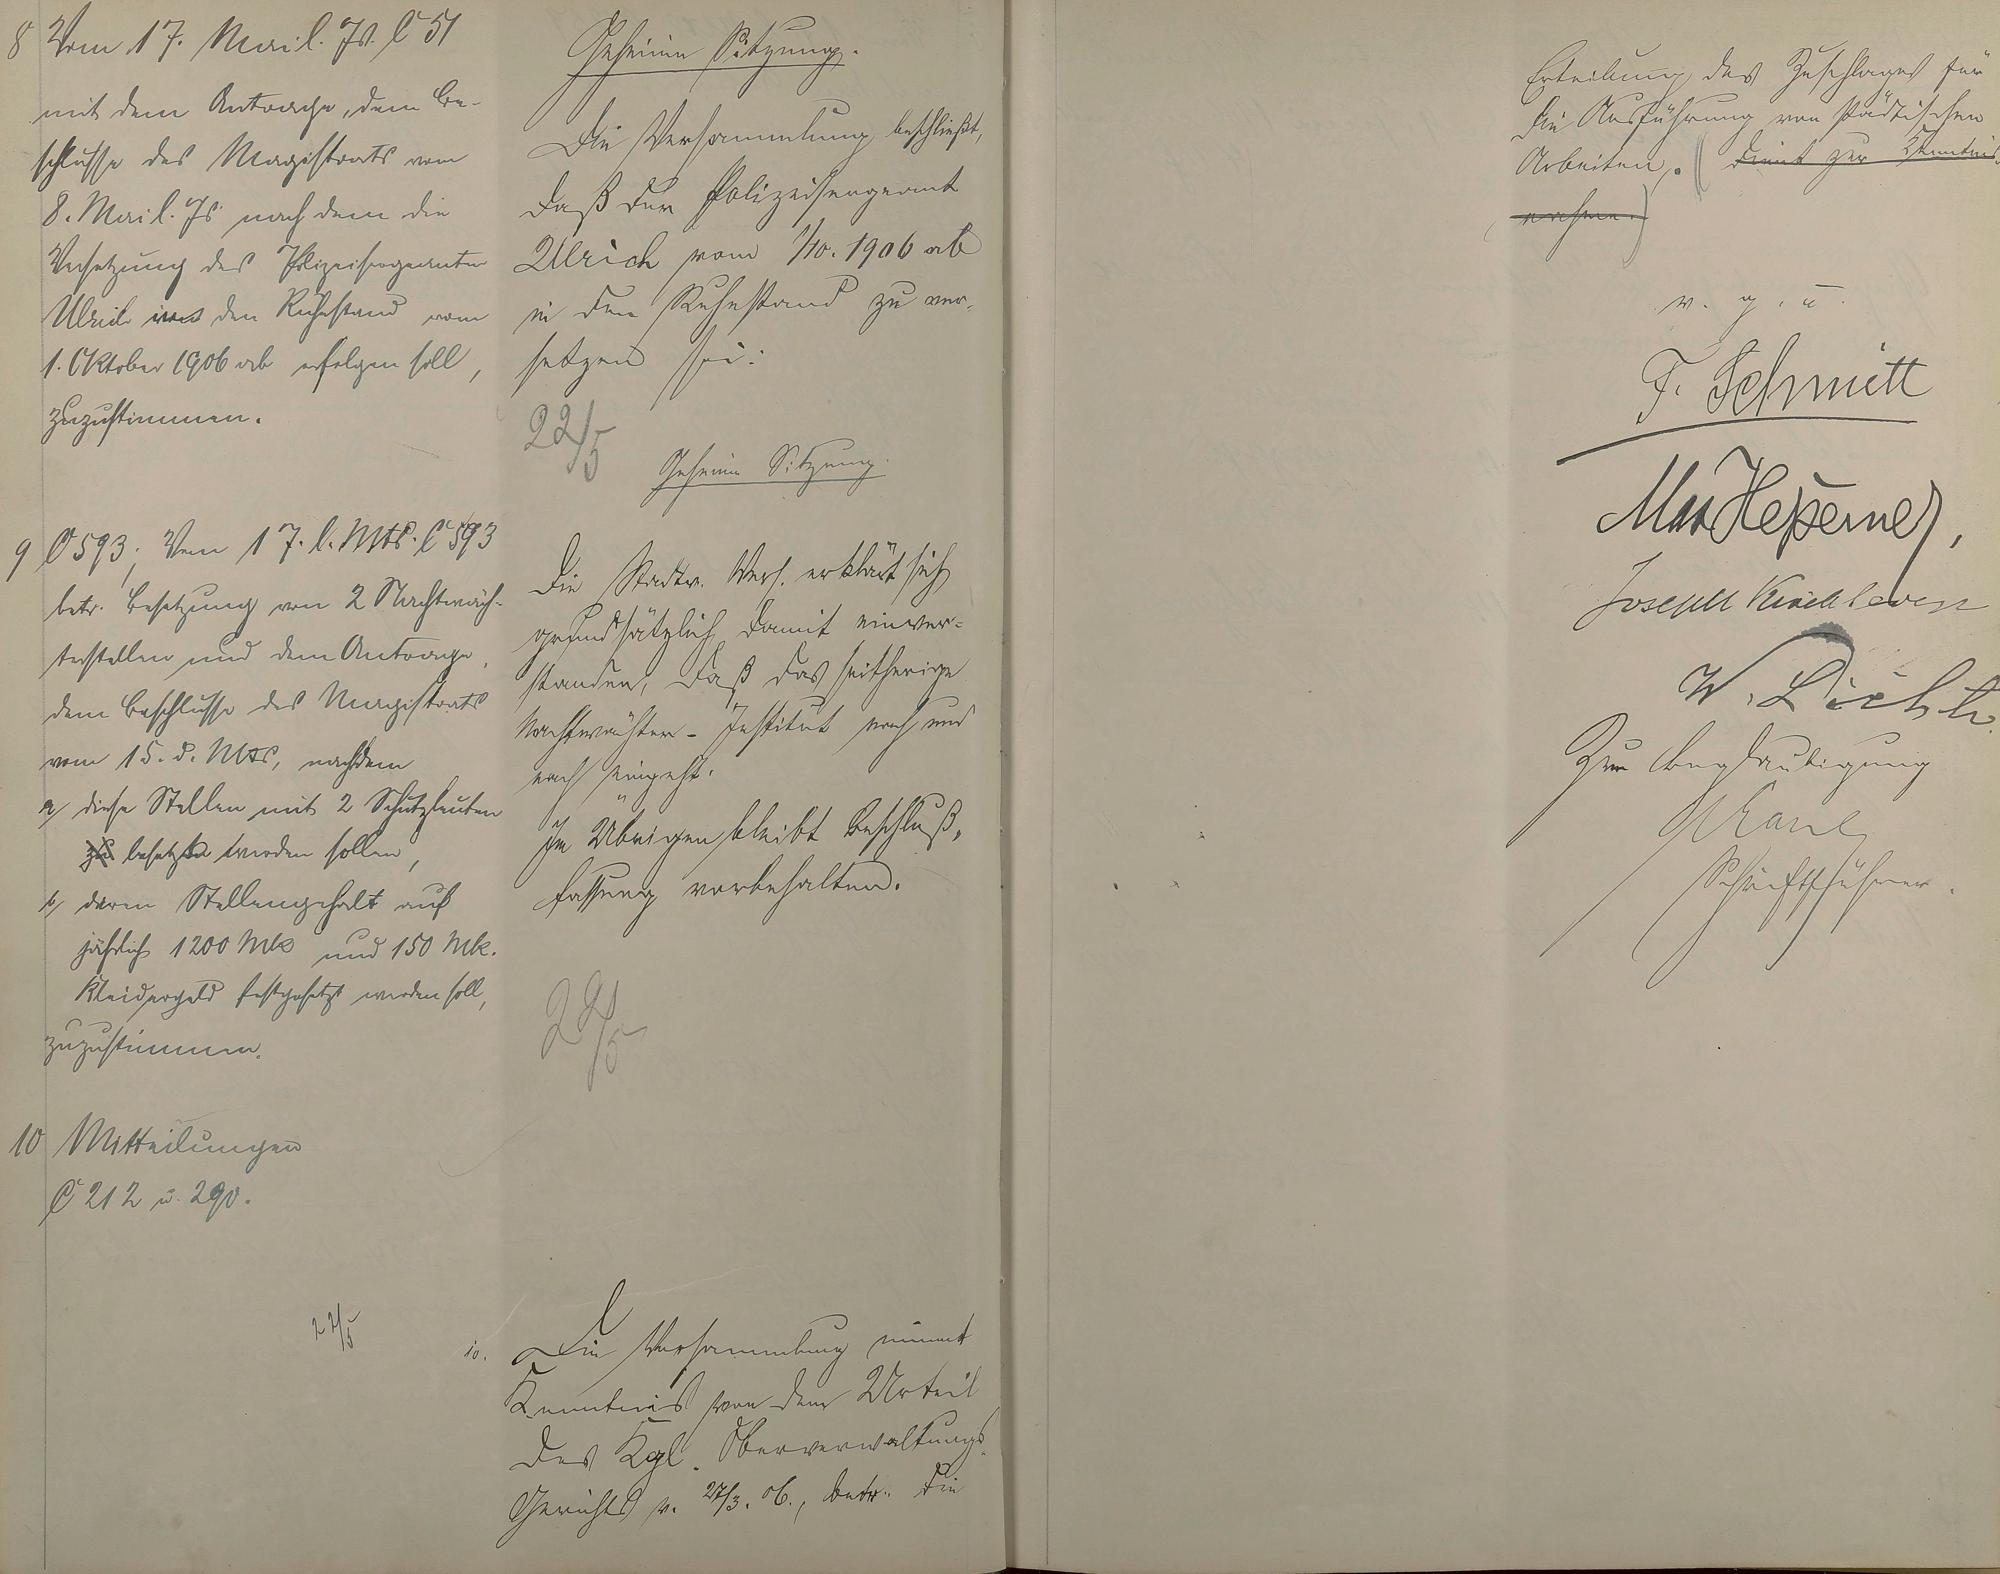 8 Vom 17. Mai l. Js. C 51
mit dem Antrage, dem Be-
schlusse des Magistrats vom
8. Mai l. Js. nach dem die
Versetzung des Polizeisergeanten
Ulrich in den Ruhestand vom
1. Oktober 1906 ab erfolgen soll,
zuzustimmen.
Geheime Sitzung.
Die Versammlung beschließt,
daß der Polizeisergeant
Ulrich vom 1/10. 1906 ab
in den Ruhestand zu ver-
setzen sei.
22/5
9 C 593, Vom 17. l. Mts. C 593
betr. Besetzung von 2 Nachtwäch-
terstellen und dem Antrage,
dem Beschlusse des Magistrats
vom 15. d. Mts, nachdem
a/ diese Stellen mit 2 Schutzleuten
zu besetzt werden sollen,
b/ deren Stellengehalt auf
jährlich 1200 Mk und 150 Mk.
Kleidergeld festgesetzt werden soll,
zuzustimmen.
Geheime Sitzung.
Die Stadtv. Vers. erklärt sich
grundsätzlich damit einver-
standen, daß das seitherige
Nachtwächter-Institut nach und
nach eingeht.
Im Übrigen bleibt Beschluß-
fassung vorbehalten.
22/5
10 Mitteilungen
C 212 u. 290.
22/5
10. Die Versammlung nimmt
Kenntnis von dem Urteil
des Kgl. Oberverwaltungs-
Gerichts v. 27/3. 06., betr. die
Erteilung des Zuschlages für
die Ausführung von städtischen
Arbeiten. (Dient zur Kenntnis-
nahme.)
v. g. u.
F. Schmitt
Max Hesserner,
Joseph
W.
Zur Beglaubigung
Schriftführer.